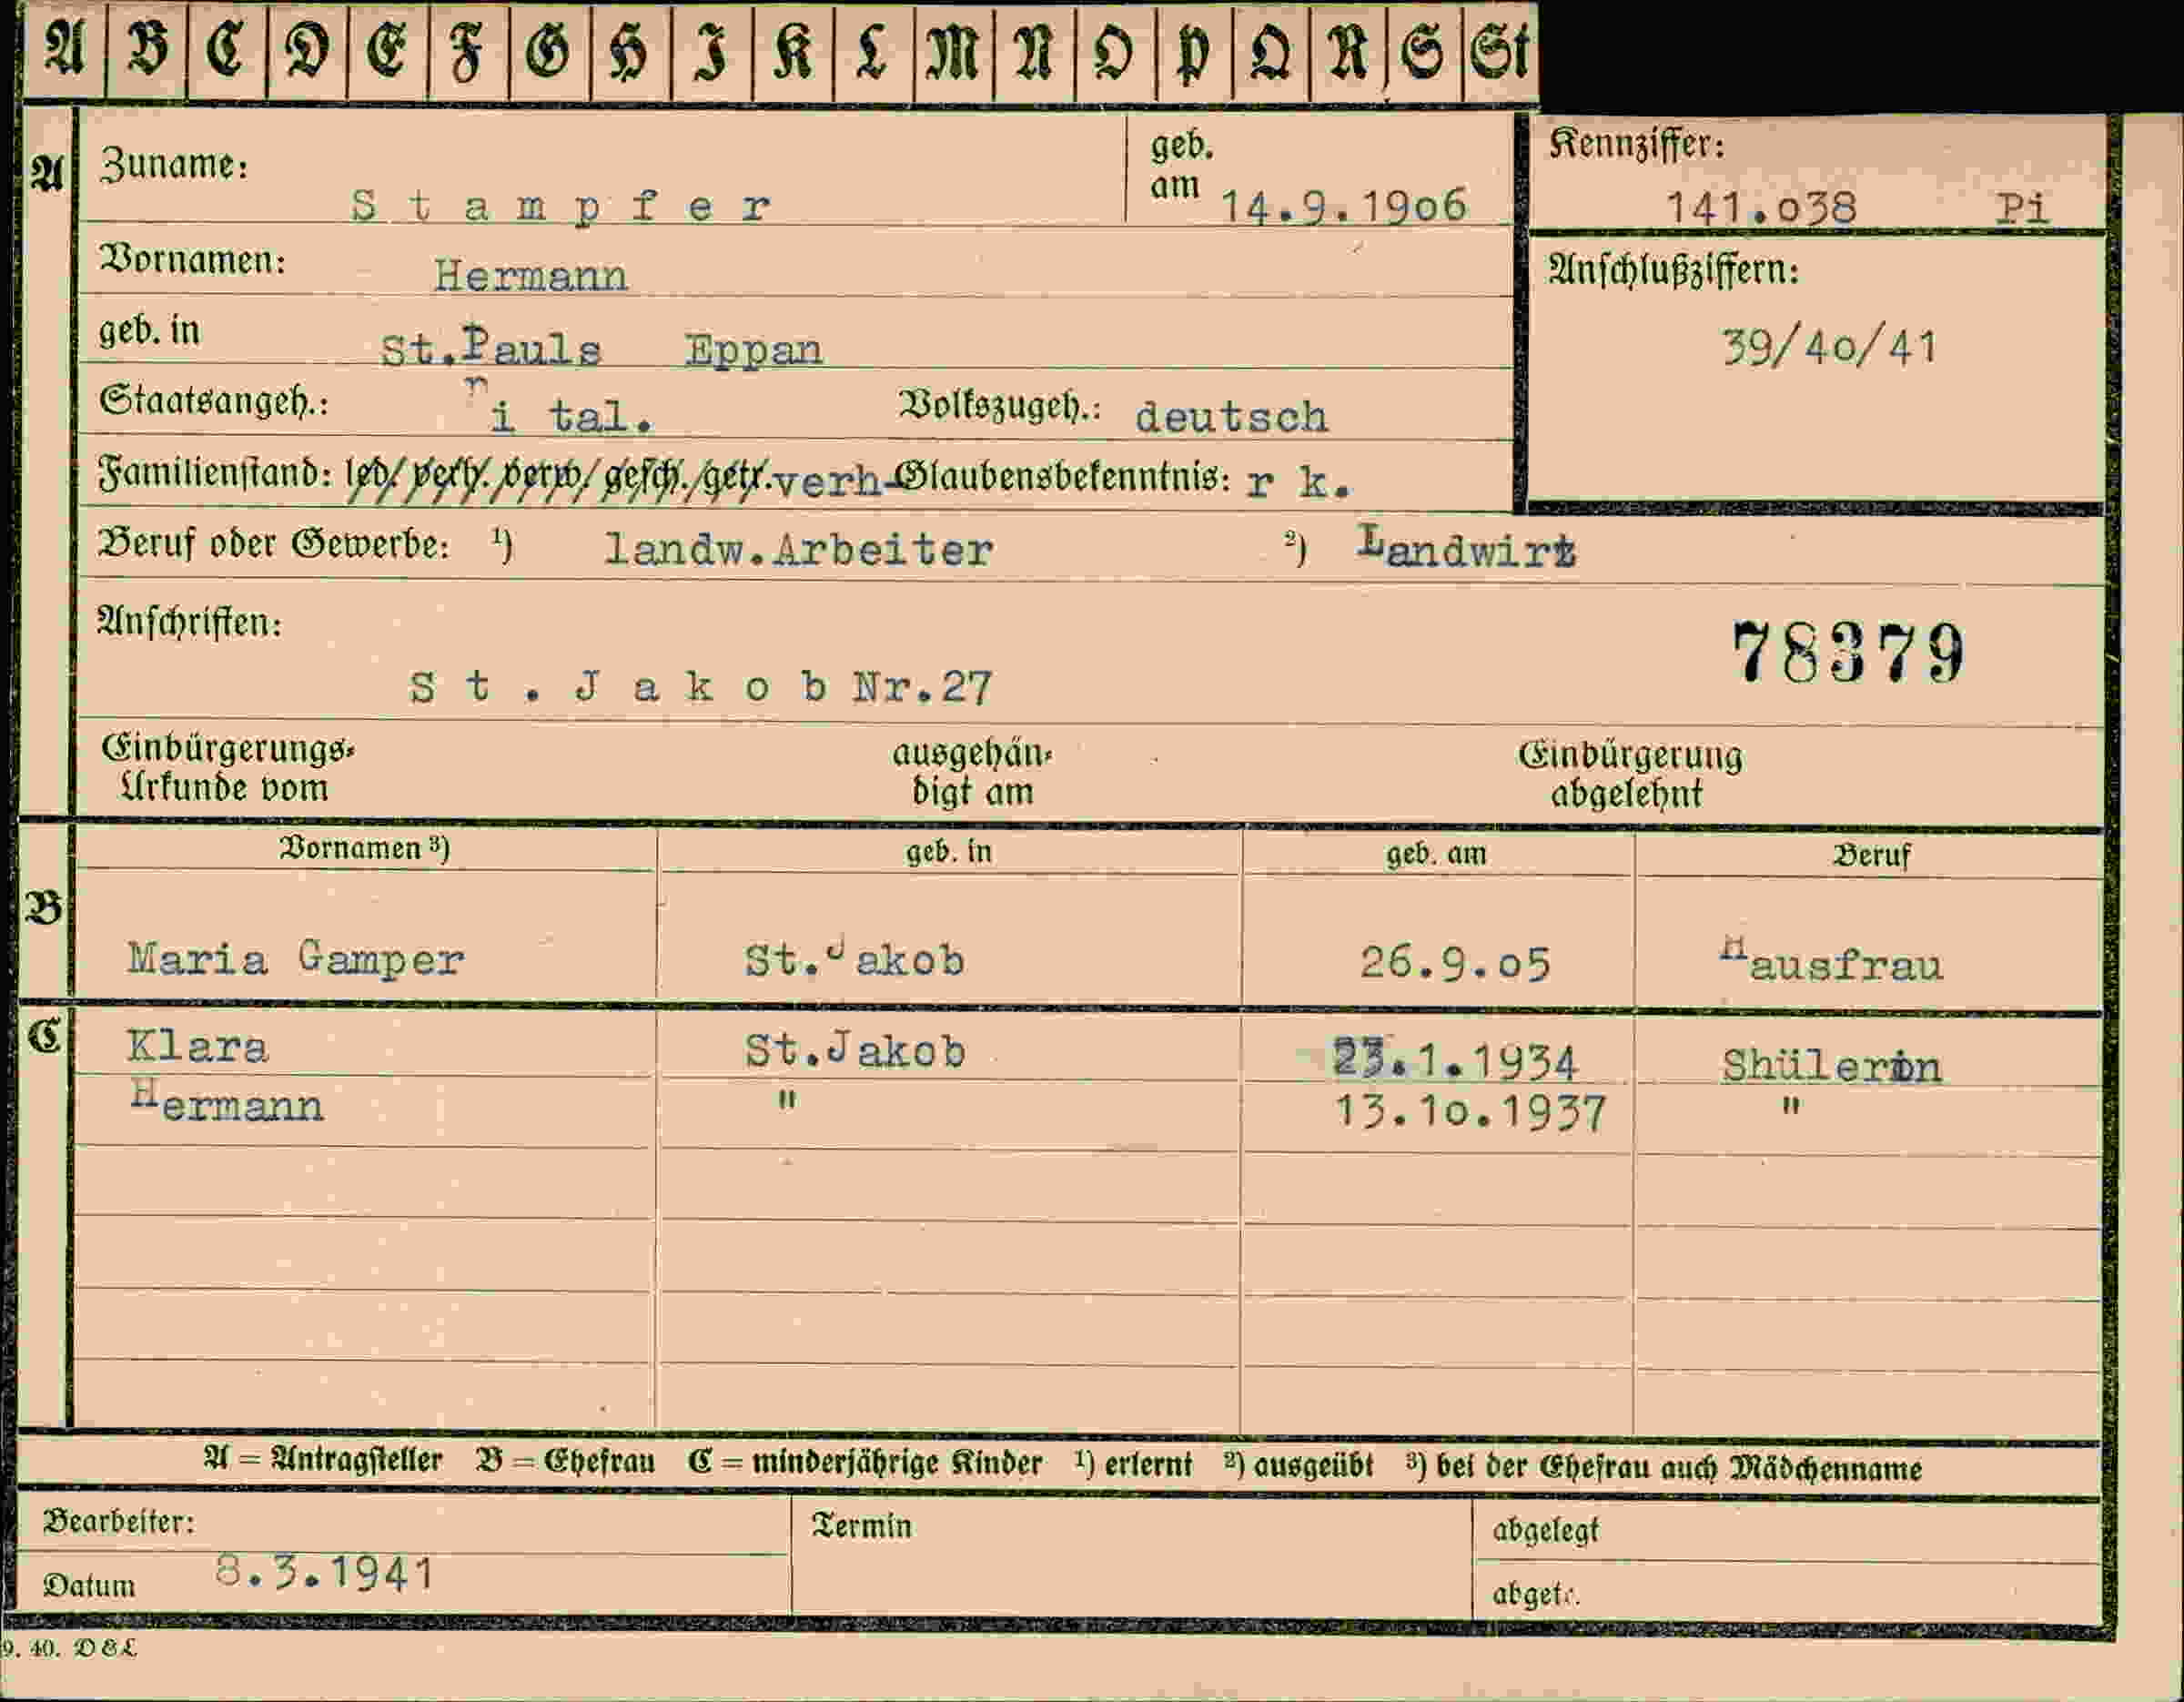 A B C D E F G H I K L M N O P Q R S St
A Zuname: Stampfer geb. am 14.9.1906 Kennziffer: 141.038 Pi
Vornamen: Hermann Anschlußziffern:
geb. in St.Pauls Eppan 39/40/41
Staatsangeh.: i tal. Volkszugeh.: deutsch
Familienstand: led./verh./verw./gesch./getr. verh- Glaubensbekenntnis: r k.
Beruf oder Gewerbe: 1) landw.Arbeiter 2) Landwirt
Anschriften: 78379
St.Jakob Nr.27
Einbürgerungs- ausgehän- Einbürgerung
Urkunde vom digt am abgelehnt
Vornamen 3) geb. in geb. am Beruf
B
Maria Gamper St.Jakob 26.9.05 Hausfrau
C Klara St.Jakob 23.1.1934 Shülerin
Hermann " 13.10.1937 "
A = Antragsteller B = Ehefrau C = minderjährige Kinder 1) erlernt 2) ausgeübt 3) bei der Ehefrau auch Mädchenname
Bearbeiter: Termin abgelegt
Datum 8.3.1941 abgetr.
9. 40. D&L